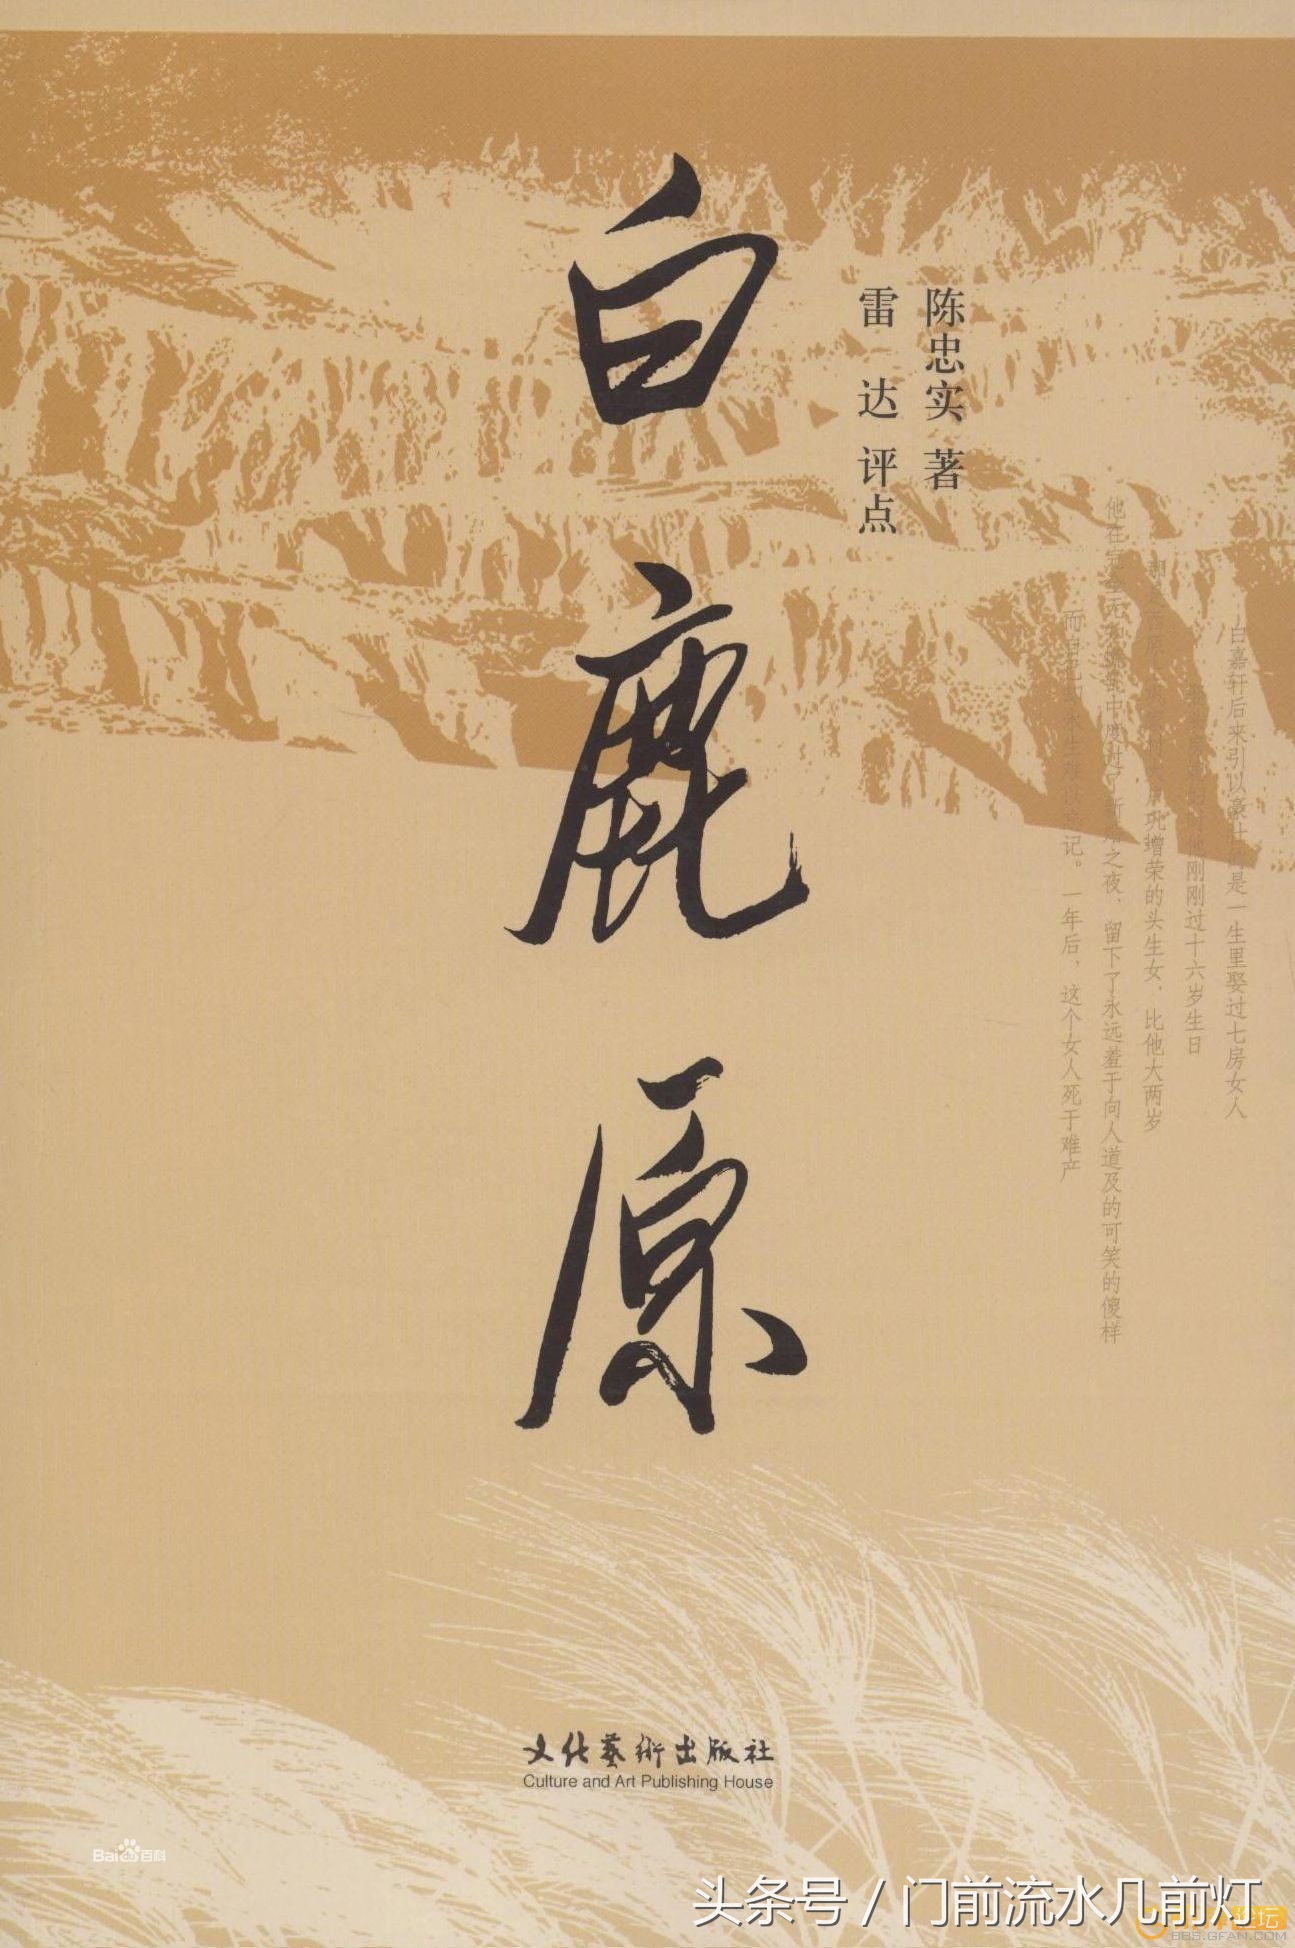 白鹿原
陈忠实 著
雷 达 评点
白嘉轩后来引以豪壮的是一生里娶过七房女人
他刚刚过十六岁生日
巩增荣的头生女，比他大两岁
他在完全无知慌乱中度过了新婚之夜，留下了永远羞于向人道及的可笑的傻样
而自己却永生难以忘记。一年后，这个女人死于难产
文化藝術出版社
Culture and Art Publishing House
Bai du 百科
头条号 / 门前流水几前灯
BBS.GFAN.COM